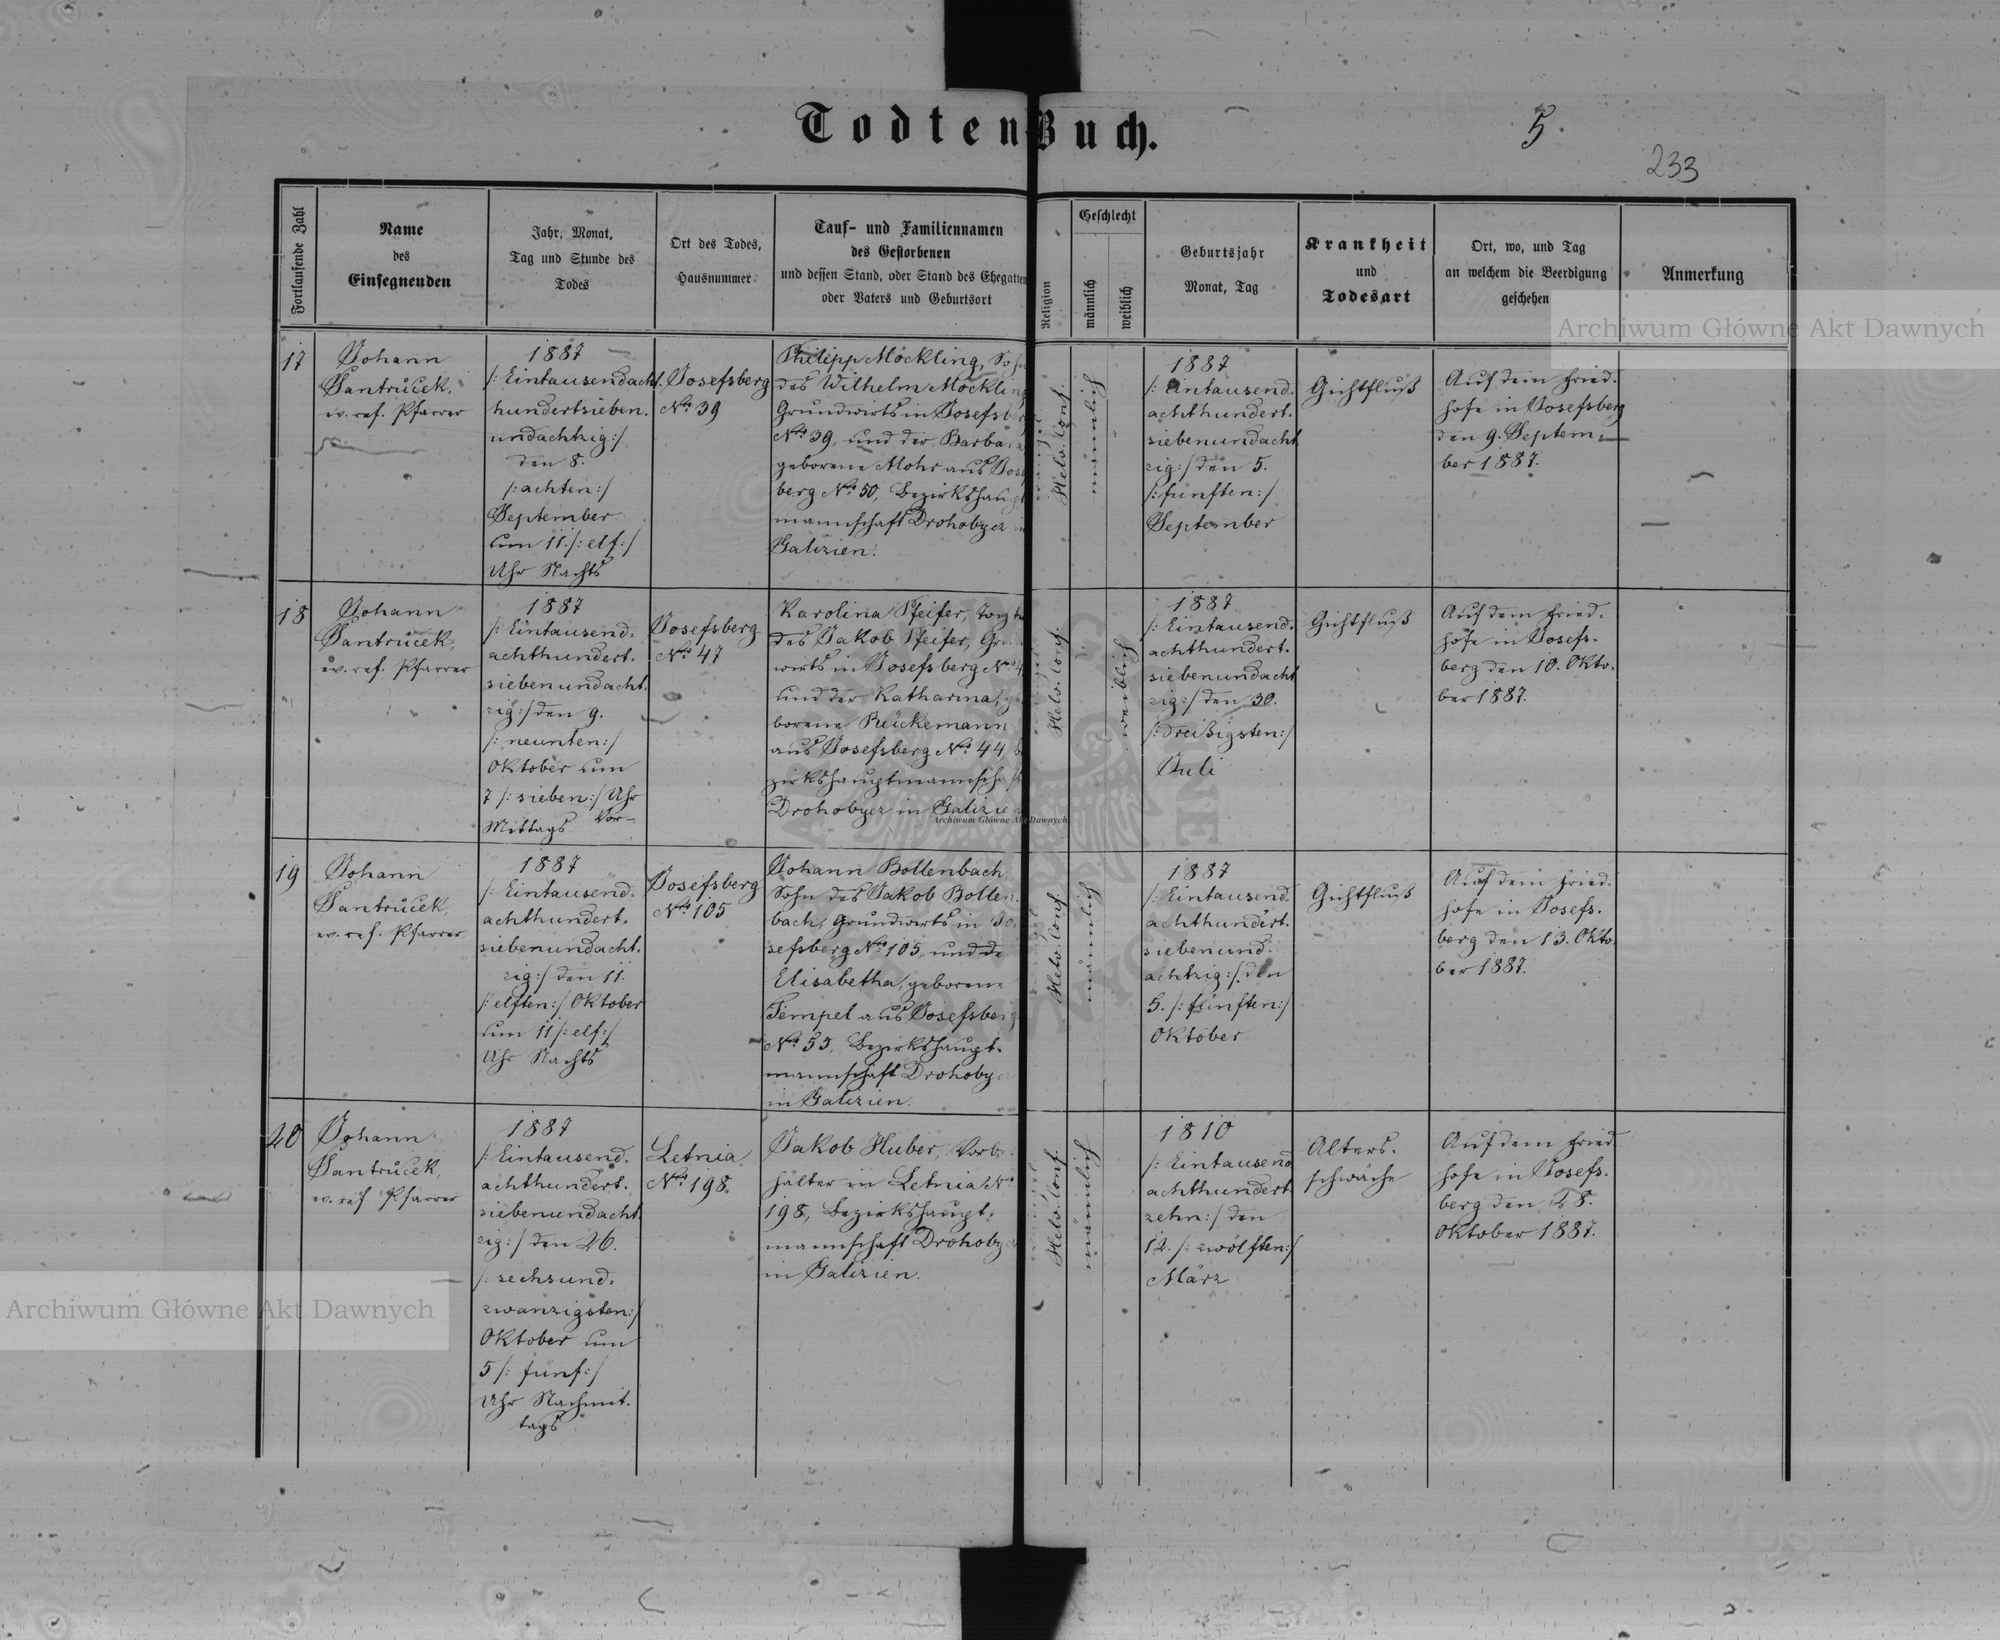 Todten-Buch.
5.
233
Fortlaufende Zahl
Name
des
Einsegnenden
Jahr, Monat,
Tag und Stunde des
Todes
Ort des Todes,
Hausnummer
Tauf- und Familiennamen
des Gestorbenen
und dessen Stand, oder Stand des Ehegatten
oder Vaters und Geburtsort
Religion
Geschlecht
männlich
weiblich
Geburtsjahr
Monat, Tag
Krankheit
und
Todesart
Ort, wo, und Tag
an welchem die Beerdigung
geschehen
Anmerkung
17
Johann
Jantruček,
ev. ref. Pfarrer
1887
/: Eintausendacht.
hundertsieben.
undachtzig :/
den 8.
/: achten :/
September
um 11 /: elf :/
Uhr Nachts
Josefsberg
No. 39
Philipp Möckling, Sohn
des Wilhelm Möckling
Grundwirts in Josefsberg
No. 39, und der Barbara
geborene Mohr aus
berg No. 50, Bezirkshaupt
mannschaft Drohobycz in
Galizien.
Helv. Conf.
männlich
1887
/: Eintausend.
achthundert.
siebenundacht
zig :/ den 5.
/: fünften :/
September
Gichtfluß
Auf dem Fried.
hofe in Josefsberg
den 9. Septem.
ber 1887.
18
Johann
Jantruček,
ev. ref. Pfarrer
1887
/: Eintausend.
achthundert.
siebenundacht.
zig :/ den 9.
/: neunten :/
Oktober um
7 /: sieben :/ Uhr
Mittags Vor-
Josefsberg
No. 47
Karolina Pfeifer,
des Jakob Pfeifer,
wirts in Josefsberg No. 4
und der Katharina, ge
borene Bückemann
aus Josefsberg No. 44,
zirkshauptmannschaft
Drohobycz in Galizien
Helv. Conf.
weiblich
1887
/: Eintausend.
achthundert.
siebenundacht
zig :/ den 30.
/: dreißigsten :/
Juli
Gichtfluß
Auf dem Fried.
hofe in Josefs-
berg den 10. Okto.
ber 1887.
19
Johann
Jantruček,
ev. ref. Pfarrer
1887
/: Eintausend.
achthundert.
siebenundacht.
zig :/ den 11.
/: elften :/ Oktober
um 11 /: elf :/
Uhr Nachts
Josefsberg
No. 105
Johann Bollenbach
Sohn des Jakob Bollen
bach, Grundwirts in Jo
sefsberg No. 105, und de
Elisabetha, geborene
Tempel aus Josefsberg
No. 55, Bezirkshaupt.
mannschaft Drohobycz
in Galizien.
Helv. Conf.
männlich
1887
/: Eintausend
achthundert.
siebenund.
achtzig :/ den
5. /: fünften :/
Oktober
Gichtfluß
Auf dem Fried.
hofe in Josefs.
berg den 13. Okto.
ber 1887.
20
Johann
Jantruček,
ev. ref Pfarrer
1887
/: Eintausend.
achthundert.
siebenundacht.
zig :/ den 26.
/: sechsund.
zwanzigsten :/
Oktober um
5 /: fünf :/
Uhr Nachmit.
tags
Letnia
No. 198.
Jakob Huber, Vorbe
hälter in Letnia No
198, Bezirkshaupt.
mannschaft Drohobycz
in Galizien.
Helv. Conf.
männlich
1810
/: Eintausend
achthundert
zehn :/ den
12. /: zwölften :/
März
Alters.
schwäche
Auf dem Fried
hofe in Josefs.
berg den 28.
Oktober 1887.
Archiwum Główne Akt Dawnych
Archiwum Główne Akt Dawnych
Archiwum Główne Akt Dawnych